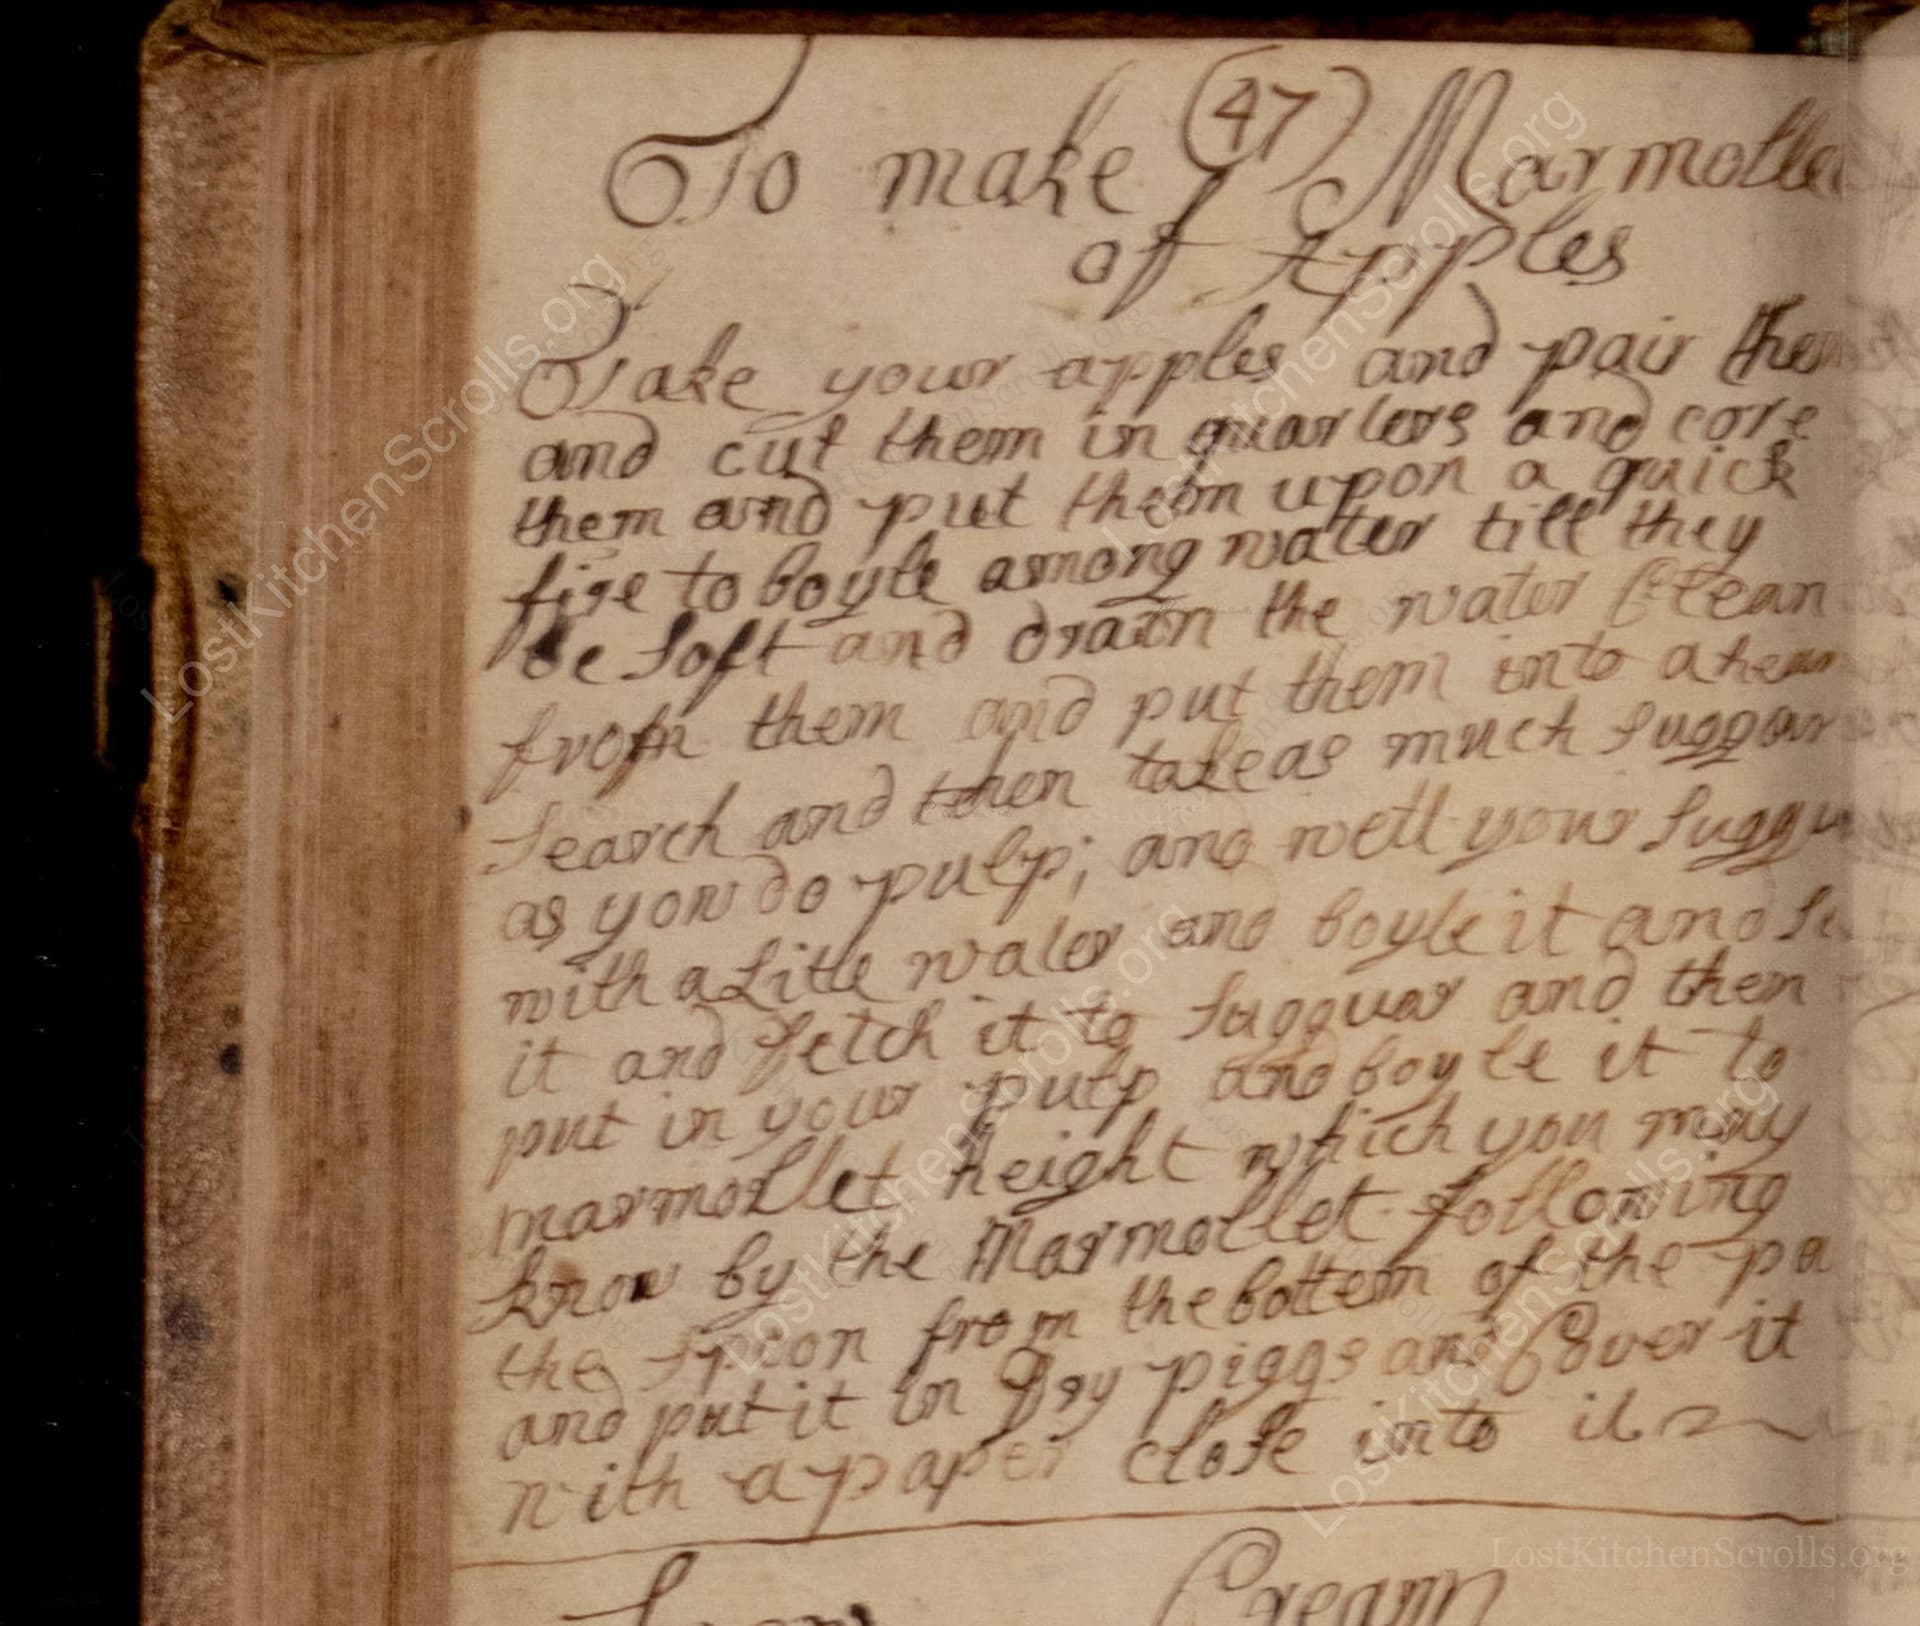 (47)
To make Marmolle
of Apples
Take your apples and pair them
and cut them in quarters and core
them and put them upon a quick
fire to boyle among water till they
be soft and drawn the water clean
from them and put them into a hear
search and then take as much suggar
as you do pulp; and wett your suggu
with a litle water and boyle it and
it and fetch it to sugguar and then
put in your pulp and boyle it to
marmollet height which you may
know by the Marmollet following
the spion from the bottem of the pa
and put it in Gry piggs and Cover it
with a paper close into it
Cream
LostKitchenScrolls.org